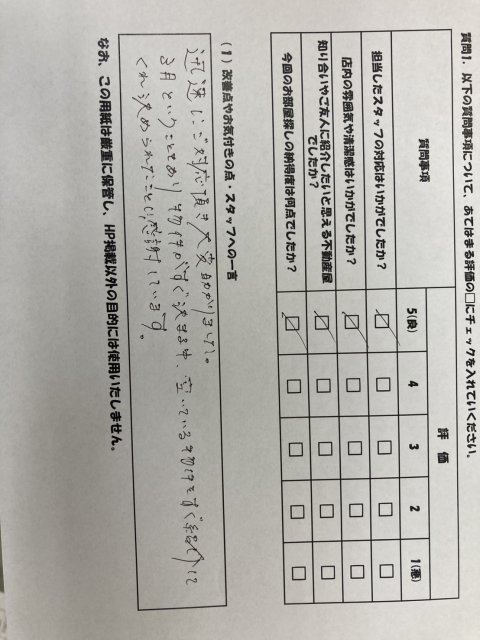 質問1. 以下の質問事項について、あてはまる評価の□にチェックを入れてください。
質問事項
評価
5(良)
4
3
2
1(悪)
担当したスタッフの対応はいかがでしたか？
店内の雰囲気や清潔感はいかがでしたか？
知り合いやご友人に紹介したいと思える不動産屋でしたか？
今回のお部屋探しの納得度は何点でしたか？
(1) 改善点やお気付きの点・スタッフへの一言
迅速にご対応頂き大変助かりました。
3月ということもあり物件がすぐ決まる中、空いている物件をすぐ紹介して
くれ決められたことに感謝しています。
なお、この用紙は厳重に保管し、HP掲載以外の目的には使用いたしません。